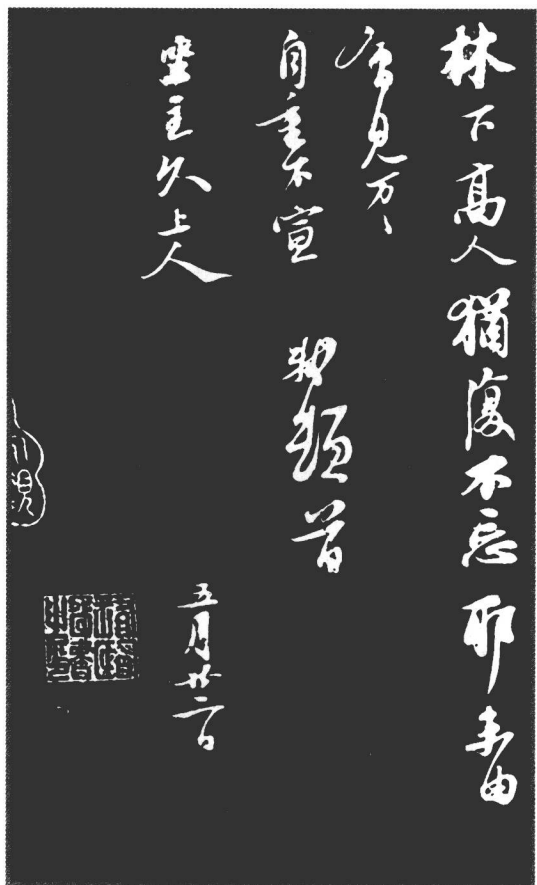 林下髙人猶復不忘耶未由
會見万〻
自重不宣 軾頓首
坐主久上人 五月廿二日